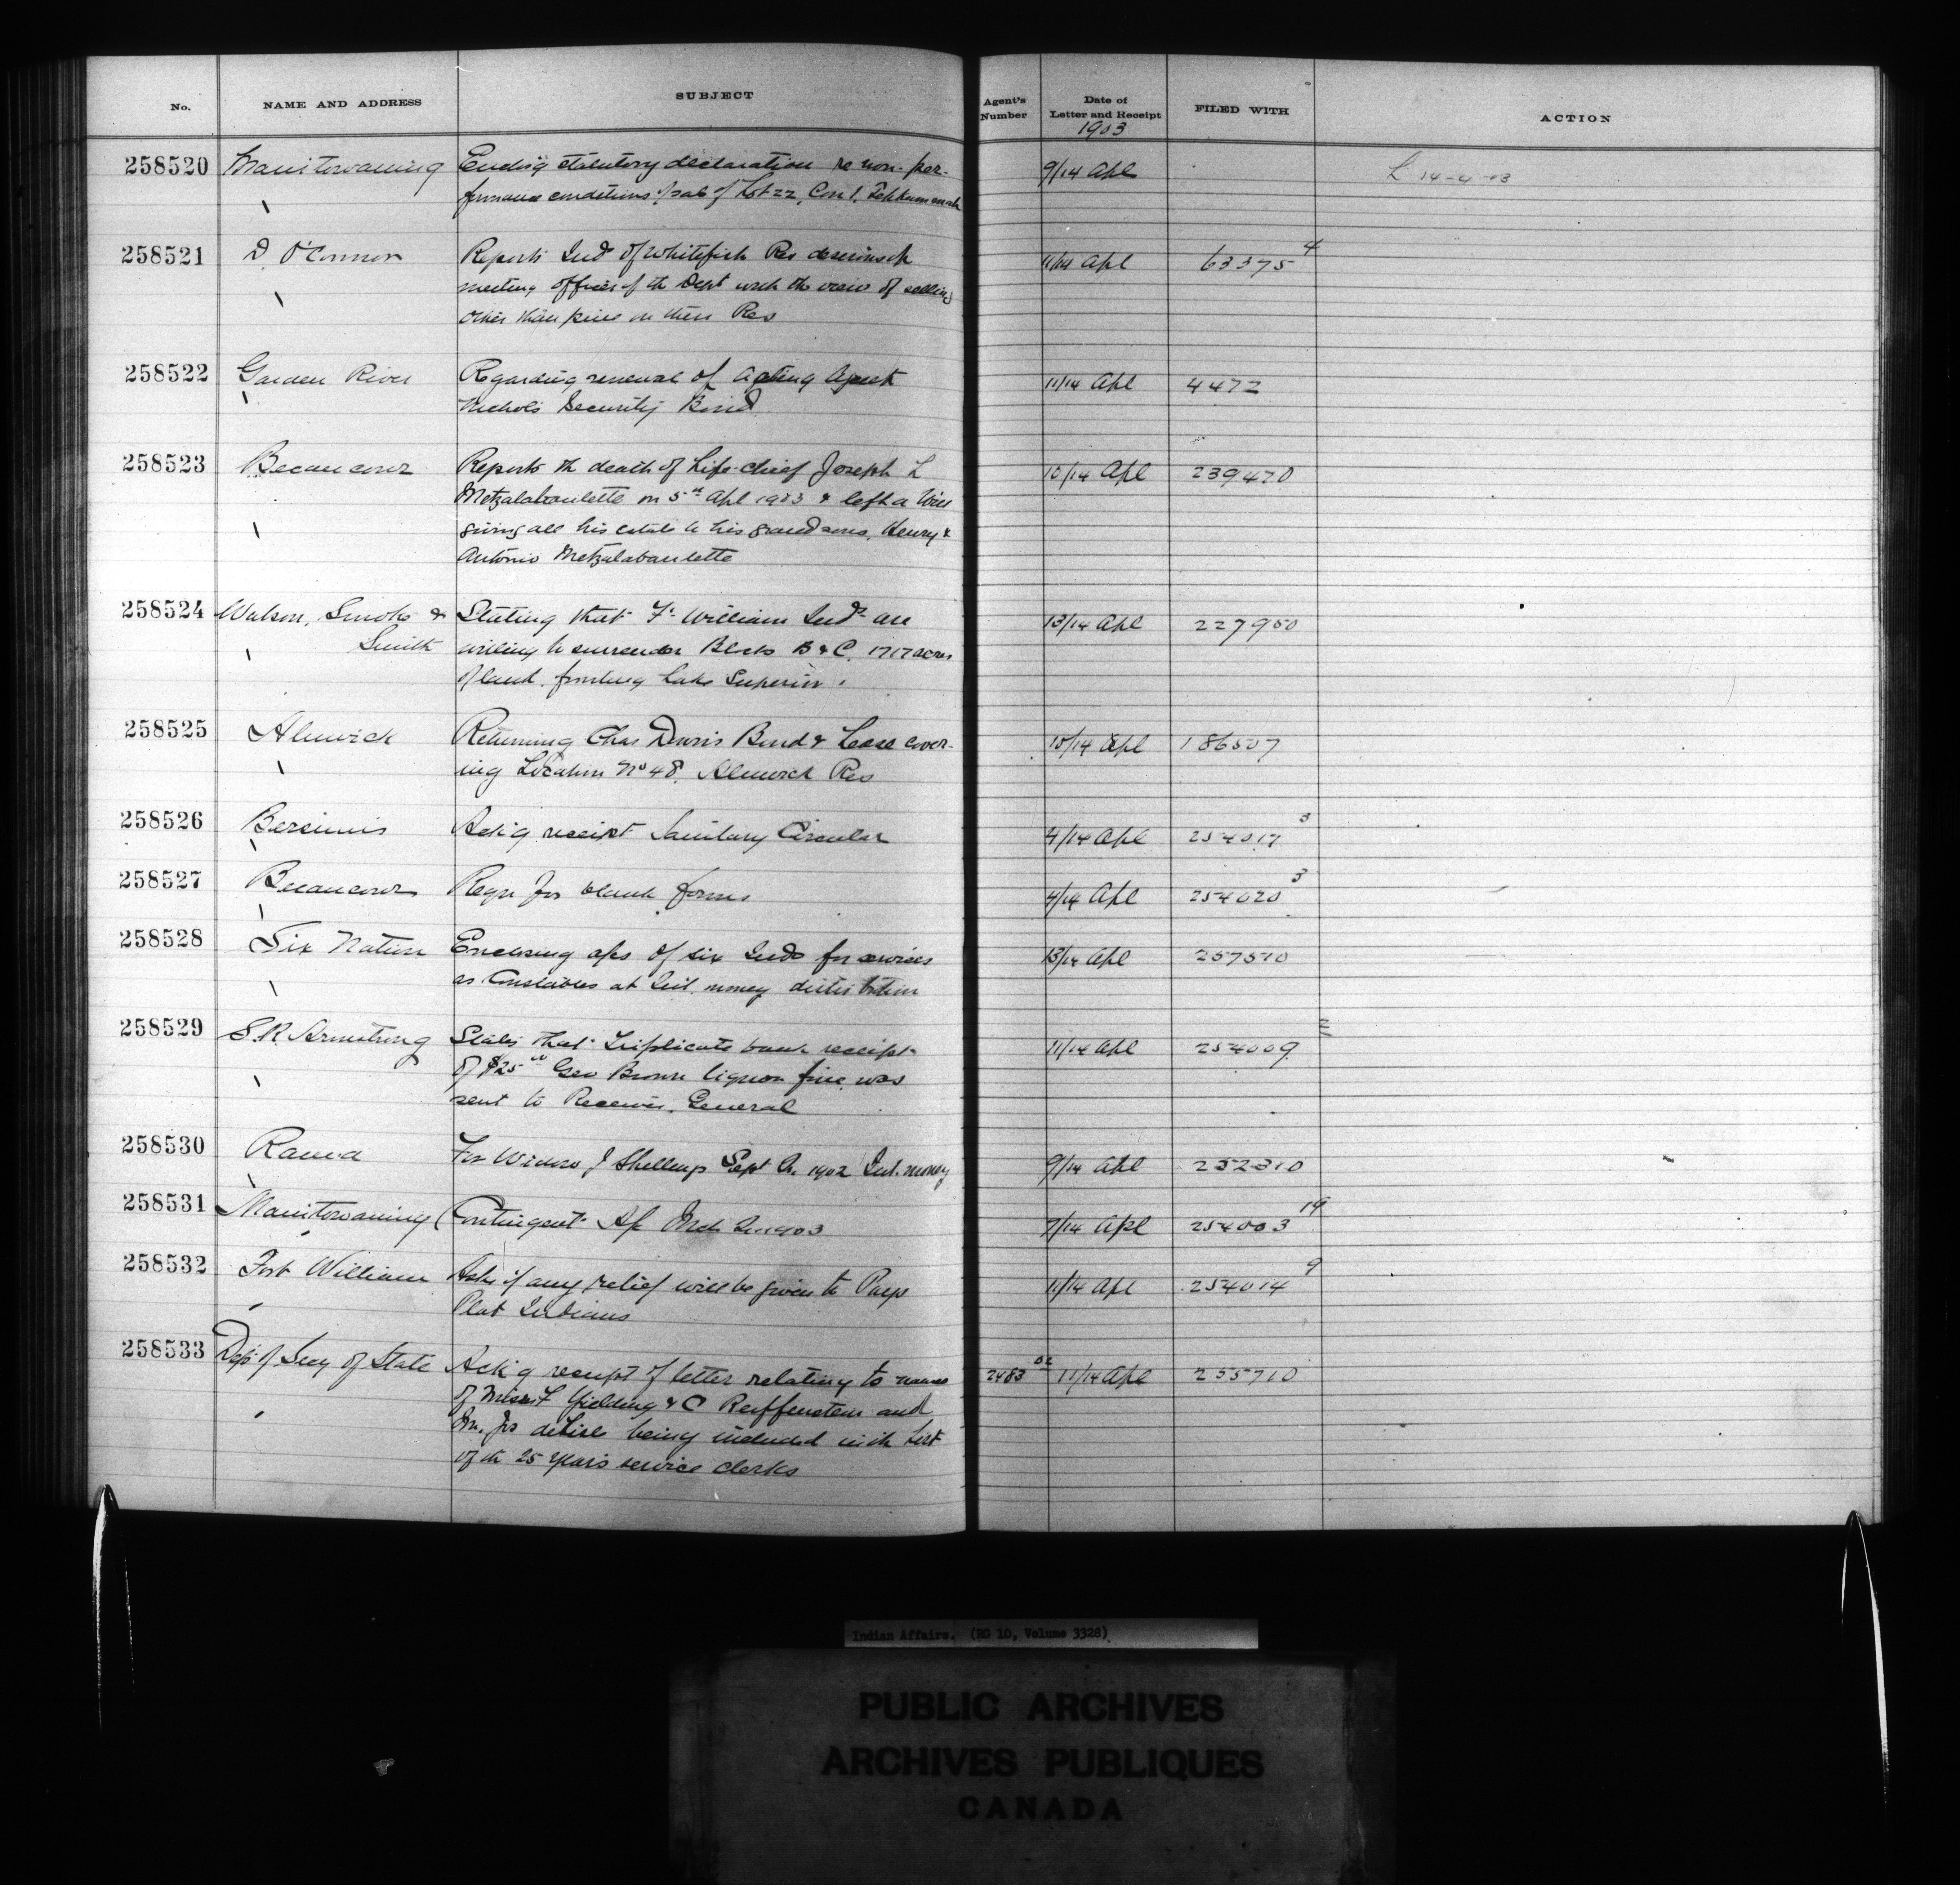 No. NAME AND ADDRESS SUBJECT Agent's Number Date of Letter and Receipt FILED WITH ACTION
1903
258520 Manitowaning Encl'g statutory declaration re non-per- 9/14 Apl L 14-4-03
formance conditions of sale of Lot 22, Con 1, Tehkummah
258521 D. O'Connor Reports Inds of Whitefish Res desirous of 11/14 Apl 63375 4
meeting officer of the Dept with the view of selling
other than pine on their Res
258522 Garden River Regarding renewal of Acting Agent 11/14 Apl 4472
Nichols Security Bond
258523 Becancour Reports the death of Life-chief Joseph L 10/14 Apl 239470
Metzalabanlette on 5th Apl 1903 & left a Will
giving all his estate to his grandsons, Henry &
Antonio Metzalabanlette
258524 Watson, Smoke & Stating that Ft William Inds are 13/14 Apl 227950
Smith willing to surrender Blocks B & C. 1717 acres
of land, fronting Lake Superior.
258525 Alnwick Returning Chas Bond & Lease cover- 10/14 Apl 186507
ing Location No 48. Alnwick Res
258526 Bersimis Ack'g receipt Sanitary Circular 4/14 Apl 254017 3
258527 Becancour Reqn for blank forms 4/14 Apl 254020 3
258528 Six Nation Enclosing a/cs of six Inds for services 13/14 Apl 257510
as Constables at Int. money distribution
258529 S.R. Armstrong States that Triplicate bank receipt 11/14 Apl 254009
of $25 00 Geo Brown liquor fine was
sent to Receiver General
258530 Rama For Widow J Shillings Sept Qr 1902 Int. money 9/14 Apl 252310
258531 Manitowaning Contingent A/c Mch Qr 1903 7/14 Apl 254003 19
258532 Fort William Asks if any relief will be given to Pays 11/14 Apl 254014 9
Plat Indians
258533 Dept of Secy of State Ack'g receipt of letter relating to names 2483 02 11/14 Apl 255710
of Misses F Yielding & C Reiffenstein and
Mr. Jas deLisle being included in the List
of the 25 years service clerks
Indian Affairs. (RG 10, Volume 3328)
PUBLIC ARCHIVES
ARCHIVES PUBLIQUES
CANADA